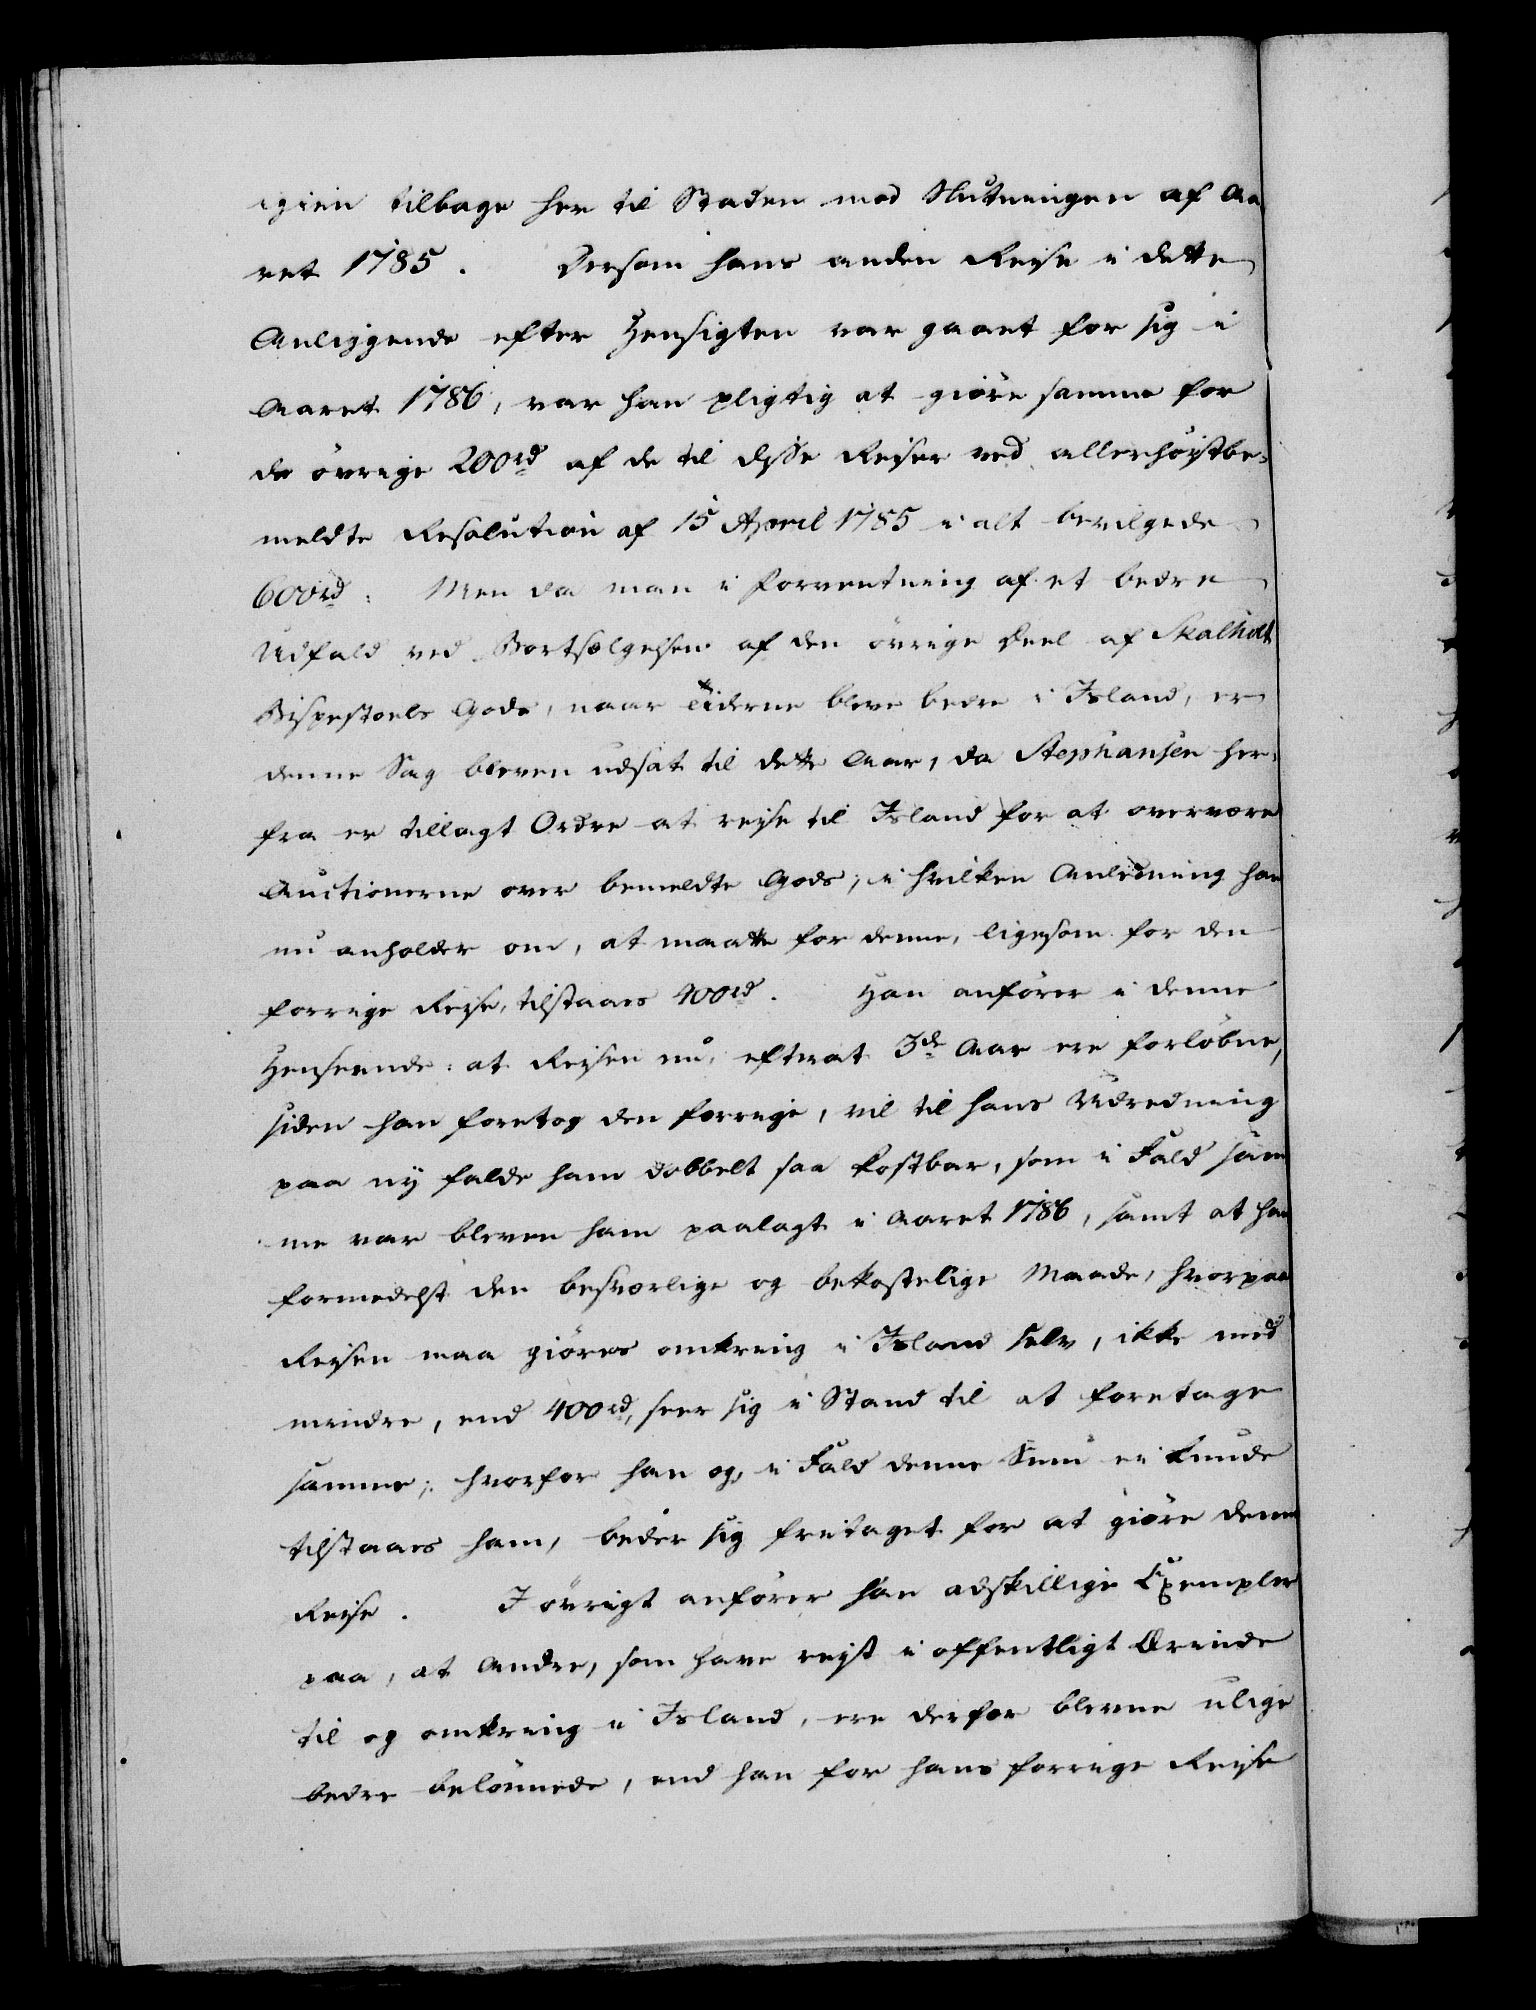 igien tilbage her til Staden mod Slutningen af Aa
ret 1785. Dersom hans anden Reyse i dette
Anliggende efter Hensigten var gaaet for sig i
Aaret 1786, var han pligtig at giöre samme for
de övrige 200rd af de til disse Reyser ved allerhöystbe-
meldte Resolution af 15 April 1785 i alt bevilgede
600rd: Men da man i Forventning af et bedre
Udfald ved Bortsælgelsen af den övrige Deel af Skalholt
Bispestoels Gods, naar Tiderne bleve bedre i Island, er
denne Sag bleven udsat til dette Aar, da Stephansen her-
fra er tillagt Ordre at reyse til Island for at overvære
Auctionerne over bemeldte Gods; i hvilken Anledning han
nu anholder om, at maatte for denne, ligesom for den
forrige Reyse, tilstaaes 400rd. Han anförer i denne
Henseende: at Reysen nu, efterat 3de Aar ere forlöbne,
siden han foretog den forrige, vil til hans Udredning
paa ny falde ham dobbelt saa kostbar, som i Fald sam
me var bleven ham paalagt i Aaret 1786, samt at han
formedelst den besværlige og bekostelige Maade, hvorpaa
Reysen maa giöres omkring i Island selv, ikke med
mindre, end 400rd, seer sig i Stand til at foretage
samme; hvorfor han og, i Fald denne Sum ei kunde
tilstaaes ham, beder sig fritaget for at giöre denne
Reyse. I övrigt anförer han adskillige Exempler
paa, at Andre, som have reyst i offentligt Ærinde
til og omkring i Island, ere derfor blevne ulige
bedre belönnede, end han for hans forrige Reyse